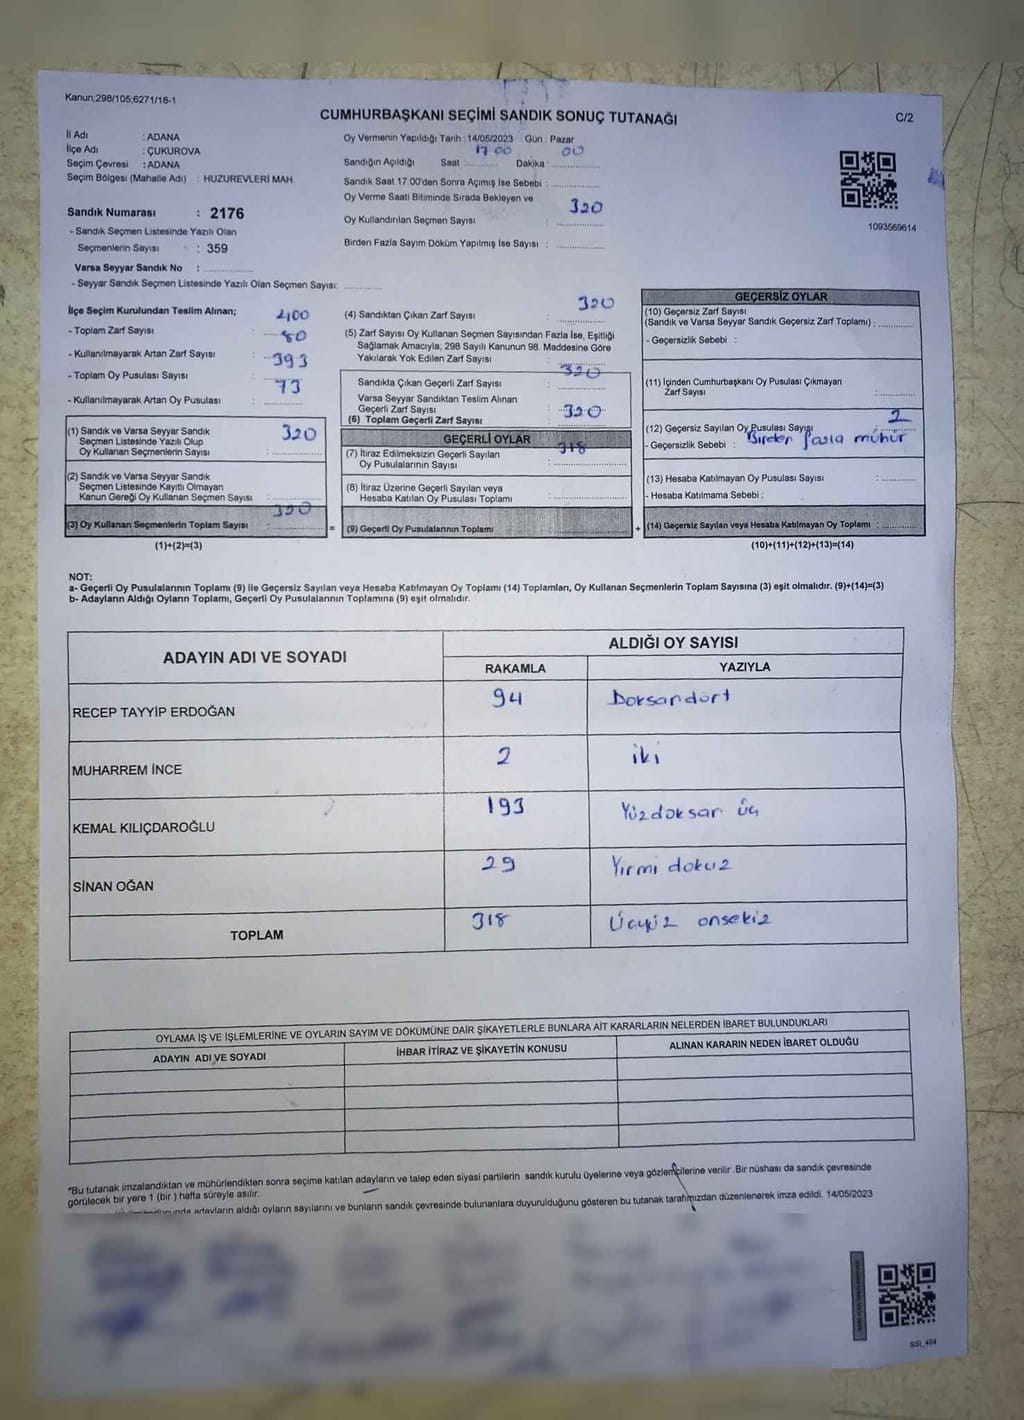 Kanun;298/105;6271/16-1
CUMHURBAŞKANI SEÇİMİ SANDIK SONUÇ TUTANAĞI
C/2
İl Adı : ADANA
İlçe Adı : ÇUKUROVA
Seçim Çevresi : ADANA
Seçim Bölgesi (Mahalle Adı) : HUZUREVLERİ MAH.
Sandık Numarası : 2176
- Sandık Seçmen Listesinde Yazılı Olan
Seçmenlerin Sayısı : 359
Varsa Seyyar Sandık No :
- Seyyar Sandık Seçmen Listesinde Yazılı Olan Seçmen Sayısı:
Oy Vermenin Yapıldığı Tarih : 14/05/2023 Gün : Pazar
17 00 00
Sandığın Açıldığı Saat : Dakika :
Sandık Saat 17.00'den Sonra Açımış İse Sebebi :
Oy Verme Saati Bitiminde Sırada Bekleyen ve
320
Oy Kullandırılan Seçmen Sayısı :
Birden Fazla Sayım Döküm Yapılmış İse Sayısı :
1093569614
İlçe Seçim Kurulundan Teslim Alınan;
400
- Toplam Zarf Sayısı :
80
- Kullanılmayarak Artan Zarf Sayısı :
393
- Toplam Oy Pusulası Sayısı :
73
- Kullanılmayarak Artan Oy Pusulası :
(1) Sandık ve Varsa Seyyar Sandık
Seçmen Listesinde Yazılı Olup
Oy Kullanan Seçmenlerin Sayısı :
320
(2) Sandık ve Varsa Seyyar Sandık
Seçmen Listesinde Kayıtlı Olmayan
Kanun Gereği Oy Kullanan Seçmen Sayısı :
320
(3) Oy Kullanan Seçmenlerin Toplam Sayısı : =
(1)+(2)=(3)
320
(4) Sandıktan Çıkan Zarf Sayısı :
(5) Zarf Sayısı Oy Kullanan Seçmen Sayısından Fazla İse, Eşitliği
Sağlamak Amacıyla; 298 Sayılı Kanunun 98. Maddesine Göre
Yakılarak Yok Edilen Zarf Sayısı :
320
Sandıkta Çıkan Geçerli Zarf Sayısı :
Varsa Seyyar Sandıktan Teslim Alınan
Geçerli Zarf Sayısı :
320
(6) Toplam Geçerli Zarf Sayısı :
GEÇERLİ OYLAR
318
(7) İtiraz Edilmeksizin Geçerli Sayılan
Oy Pusulalarının Sayısı :
(8) İtiraz Üzerine Geçerli Sayılan veya
Hesaba Katılan Oy Pusulası Toplamı :
(9) Geçerli Oy Pusulalarının Toplamı : +
GEÇERSİZ OYLAR
(10) Geçersiz Zarf Sayısı
(Sandık ve Varsa Seyyar Sandık Geçersiz Zarf Toplamı) :
- Geçersizlik Sebebi :
(11) İçinden Cumhurbaşkanı Oy Pusulası Çıkmayan
Zarf Sayısı :
2
(12) Geçersiz Sayılan Oy Pusulası Sayısı :
- Geçersizlik Sebebi : Birden fazla mühür
(13) Hesaba Katılmayan Oy Pusulası Sayısı :
- Hesaba Katılmama Sebebi :
(14) Geçersiz Sayılan veya Hesaba Katılmayan Oy Toplamı :
(10)+(11)+(12)+(13)=(14)
NOT:
a- Geçerli Oy Pusulalarının Toplamı (9) ile Geçersiz Sayılan veya Hesaba Katılmayan Oy Toplamı (14) Toplamları, Oy Kullanan Seçmenlerin Toplam Sayısına (3) eşit olmalıdır. (9)+(14)=(3)
b- Adayların Aldığı Oyların Toplamı, Geçerli Oy Pusulalarının Toplamına (9) eşit olmalıdır.
ADAYIN ADI VE SOYADI
ALDIĞI OY SAYISI
RAKAMLA YAZIYLA
RECEP TAYYİP ERDOĞAN 94 Doksandört
MUHARREM İNCE 2 iki
KEMAL KILIÇDAROĞLU 193 Yüzdoksan üç
SİNAN OĞAN 29 Yirmi dokuz
TOPLAM 318 Üçyüz onsekiz
OYLAMA İŞ VE İŞLEMLERİNE VE OYLARIN SAYIM VE DÖKÜMÜNE DAİR ŞİKAYETLERLE BUNLARA AİT KARARLARIN NELERDEN İBARET BULUNDUKLARI
ADAYIN ADI VE SOYADI İHBAR İTİRAZ VE ŞİKAYETİN KONUSU ALINAN KARARIN NEDEN İBARET OLDUĞU
*Bu tutanak imzalandıktan ve mühürlendikten sonra seçime katılan adayların ve talep eden siyasi partilerin sandık kurulu üyelerine veya gözlemcilerine verilir .Bir nüshası da sandık çevresinde
görülecek bir yere 1 (bir ) hafta süreyle asılır.
adayların aldığı oyların sayılarını ve bunların sandık çevresinde bulunanlara duyurulduğunu gösteren bu tutanak tarafımızdan düzenlenerek imza edildi. 14/05/2023
SSI_404